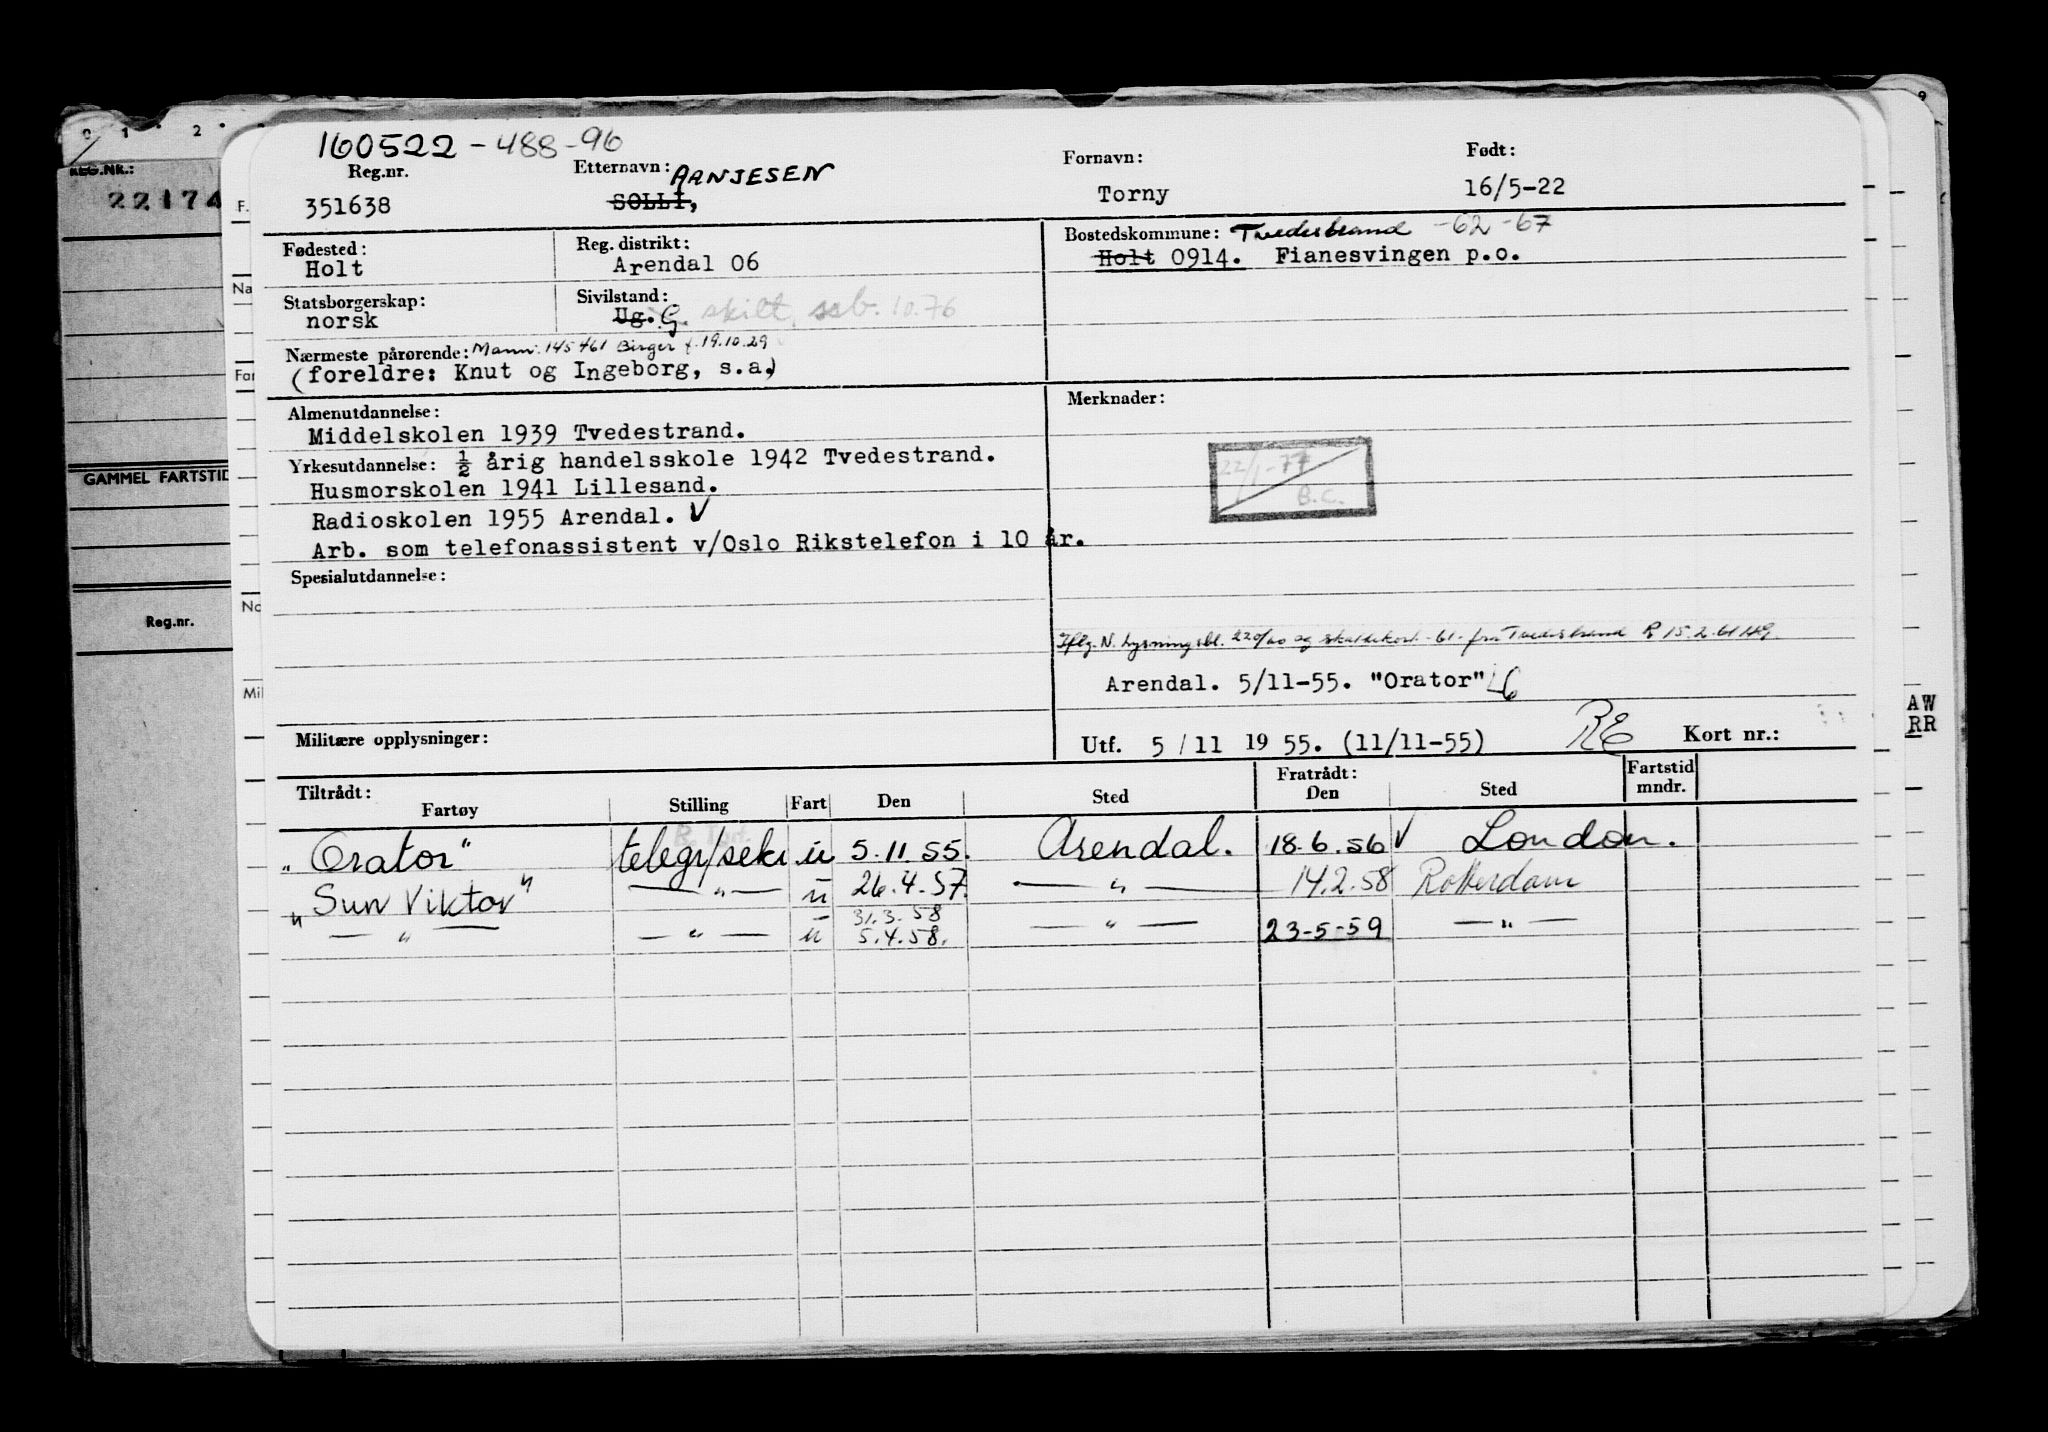 0 1 2
9
REG.NR.:
22174
GAMMEL FARTSTID
Reg.nr.
F.
Na
Far
No
Mil
AW
RR
160522-488-96
Reg.nr. Etternavn: AANJESEN Fornavn: Født:
351638 SOLLI, Torny 16/5-22
Fødested: Reg. distrikt: Bostedskommune: Tvedestrand -62 -67
Holt Arendal 06 Holt 0914. Fianesvingen p.o.
Statsborgerskap: Sivilstand:
norsk Ug. G. skilt, ssb. 10.76
Nærmeste pårørende: Mann: 145461 Birger f. 19.10.29
(foreldre: Knut og Ingeborg, s.a.)
Almenutdannelse: Merknader:
Middelskolen 1939 Tvedestrand.
Yrkesutdannelse: ½ årig handelsskole 1942 Tvedestrand.
Husmorskolen 1941 Lillesand.
Radioskolen 1955 Arendal. V
Arb. som telefonassistent v/Oslo Rikstelefon i 10 år.
22/1-77
B.C.
Spesialutdannelse:
Iflg. N. Lysningsbl. 220/60 og skattekort -61- fra Tvedestrand R 15.2.61
Arendal. 5/11-55. "Orator"
Militære opplysninger: Utf. 5/11 19 55. (11/11-55) RE Kort nr.:
Tiltrådt: Fratrådt: Fartstid
Fartøy Stilling Fart Den Sted Den Sted mndr.
"Orator" telegr/sekr u 5.11.55. Arendal. 18.6.56 V London.
"Sun Viktor" — " — u 26.4.57. — " — 14.2.58 Rotterdam
31.3.58
— " — — " — u 5.4.58. — " — 23-5-59 — " —